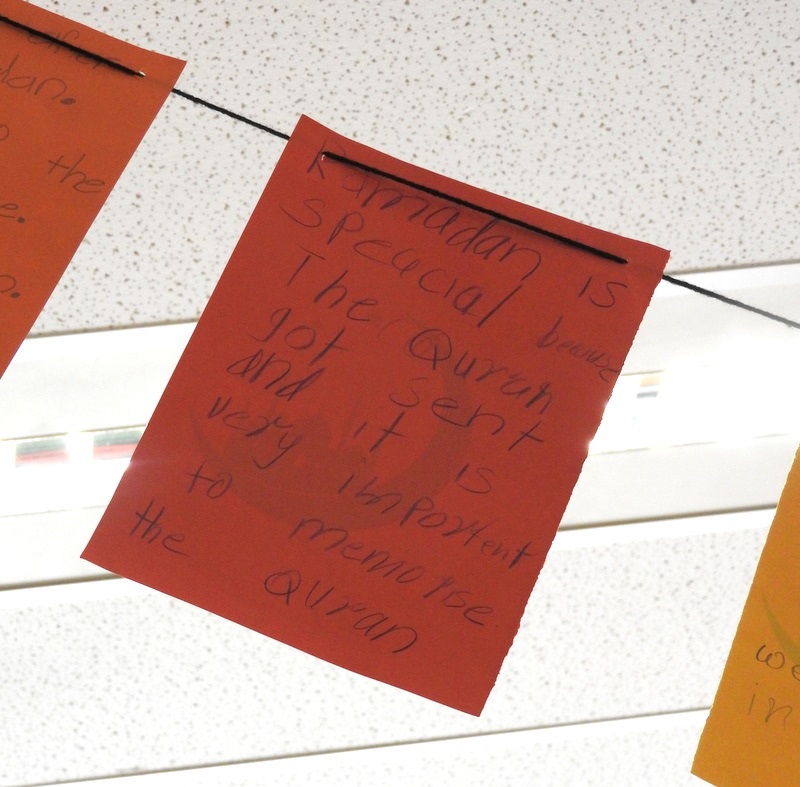 dan.
the
Ramadan is
speacial because
The Quran
got sent
and it is
very importent
to memorise
the Quran
we
in